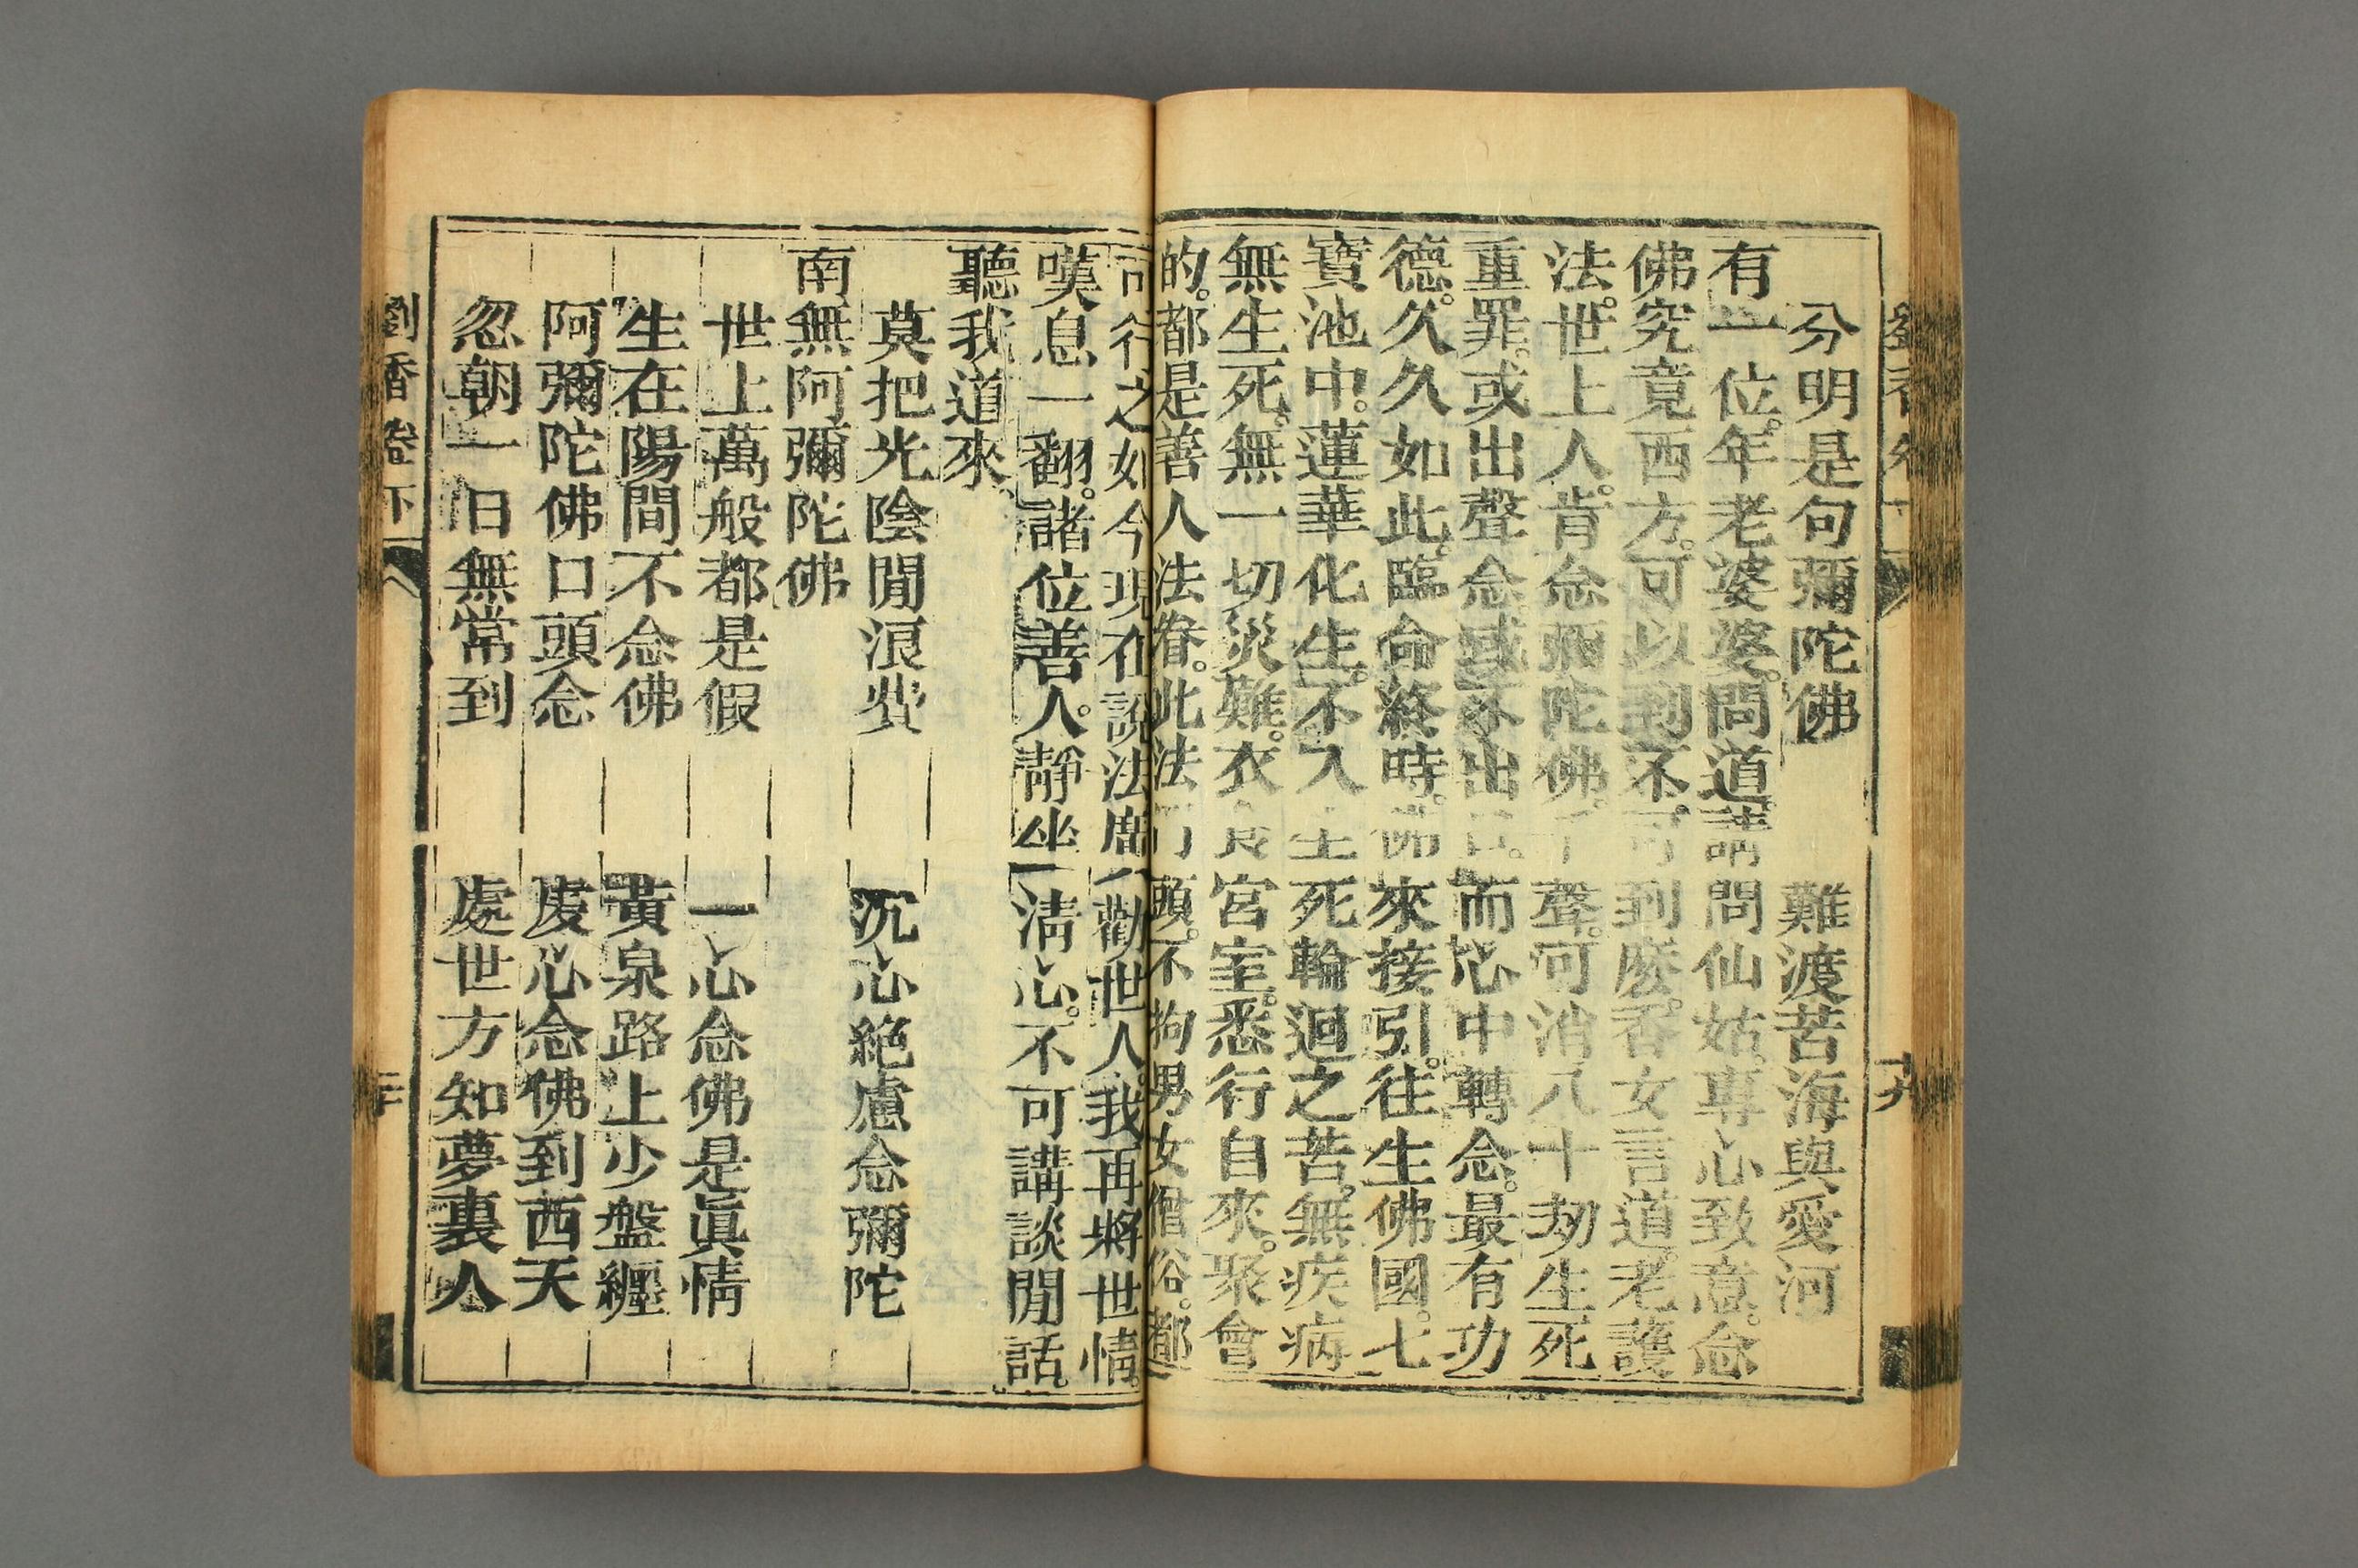 分明是句彌陀佛　難渡苦海與愛河
有一位。年老婆婆。問道。請問仙姑。專心致意。念
佛究竟西方。可以到不。可到麽。香女言道。老護
法。世上人。肯念彌陀佛。千聲。可消八十劫生死
重罪。或出聲念。或不出口。而心中轉念。最有功
德。久久如此。臨命終時。佛來接引。往生佛國。七
寶池中。蓮華化生。不入生死輪迴之苦。無疾病
無生死。無一切災難。衣食宮室。悉行自來。聚會
的。都是善人法眷。此法門頭。不拘男女僧俗。都
可行之如今現在說法席。勸世人。我再將世情。
嘆息一翻。諸位善人。靜坐清心。不可講談閒話。
聽我道來
莫把光陰閒浪費　沉心絕慮念彌陀
南無阿彌陀佛
世上萬般都是假　一心念佛是眞情
生在陽間不念佛　黃泉路上少盤纏
阿彌陀佛口頭念　虔心念佛到西天
忽朝一日無常到　處世方知夢裏人
劉香卷下
二十
十九